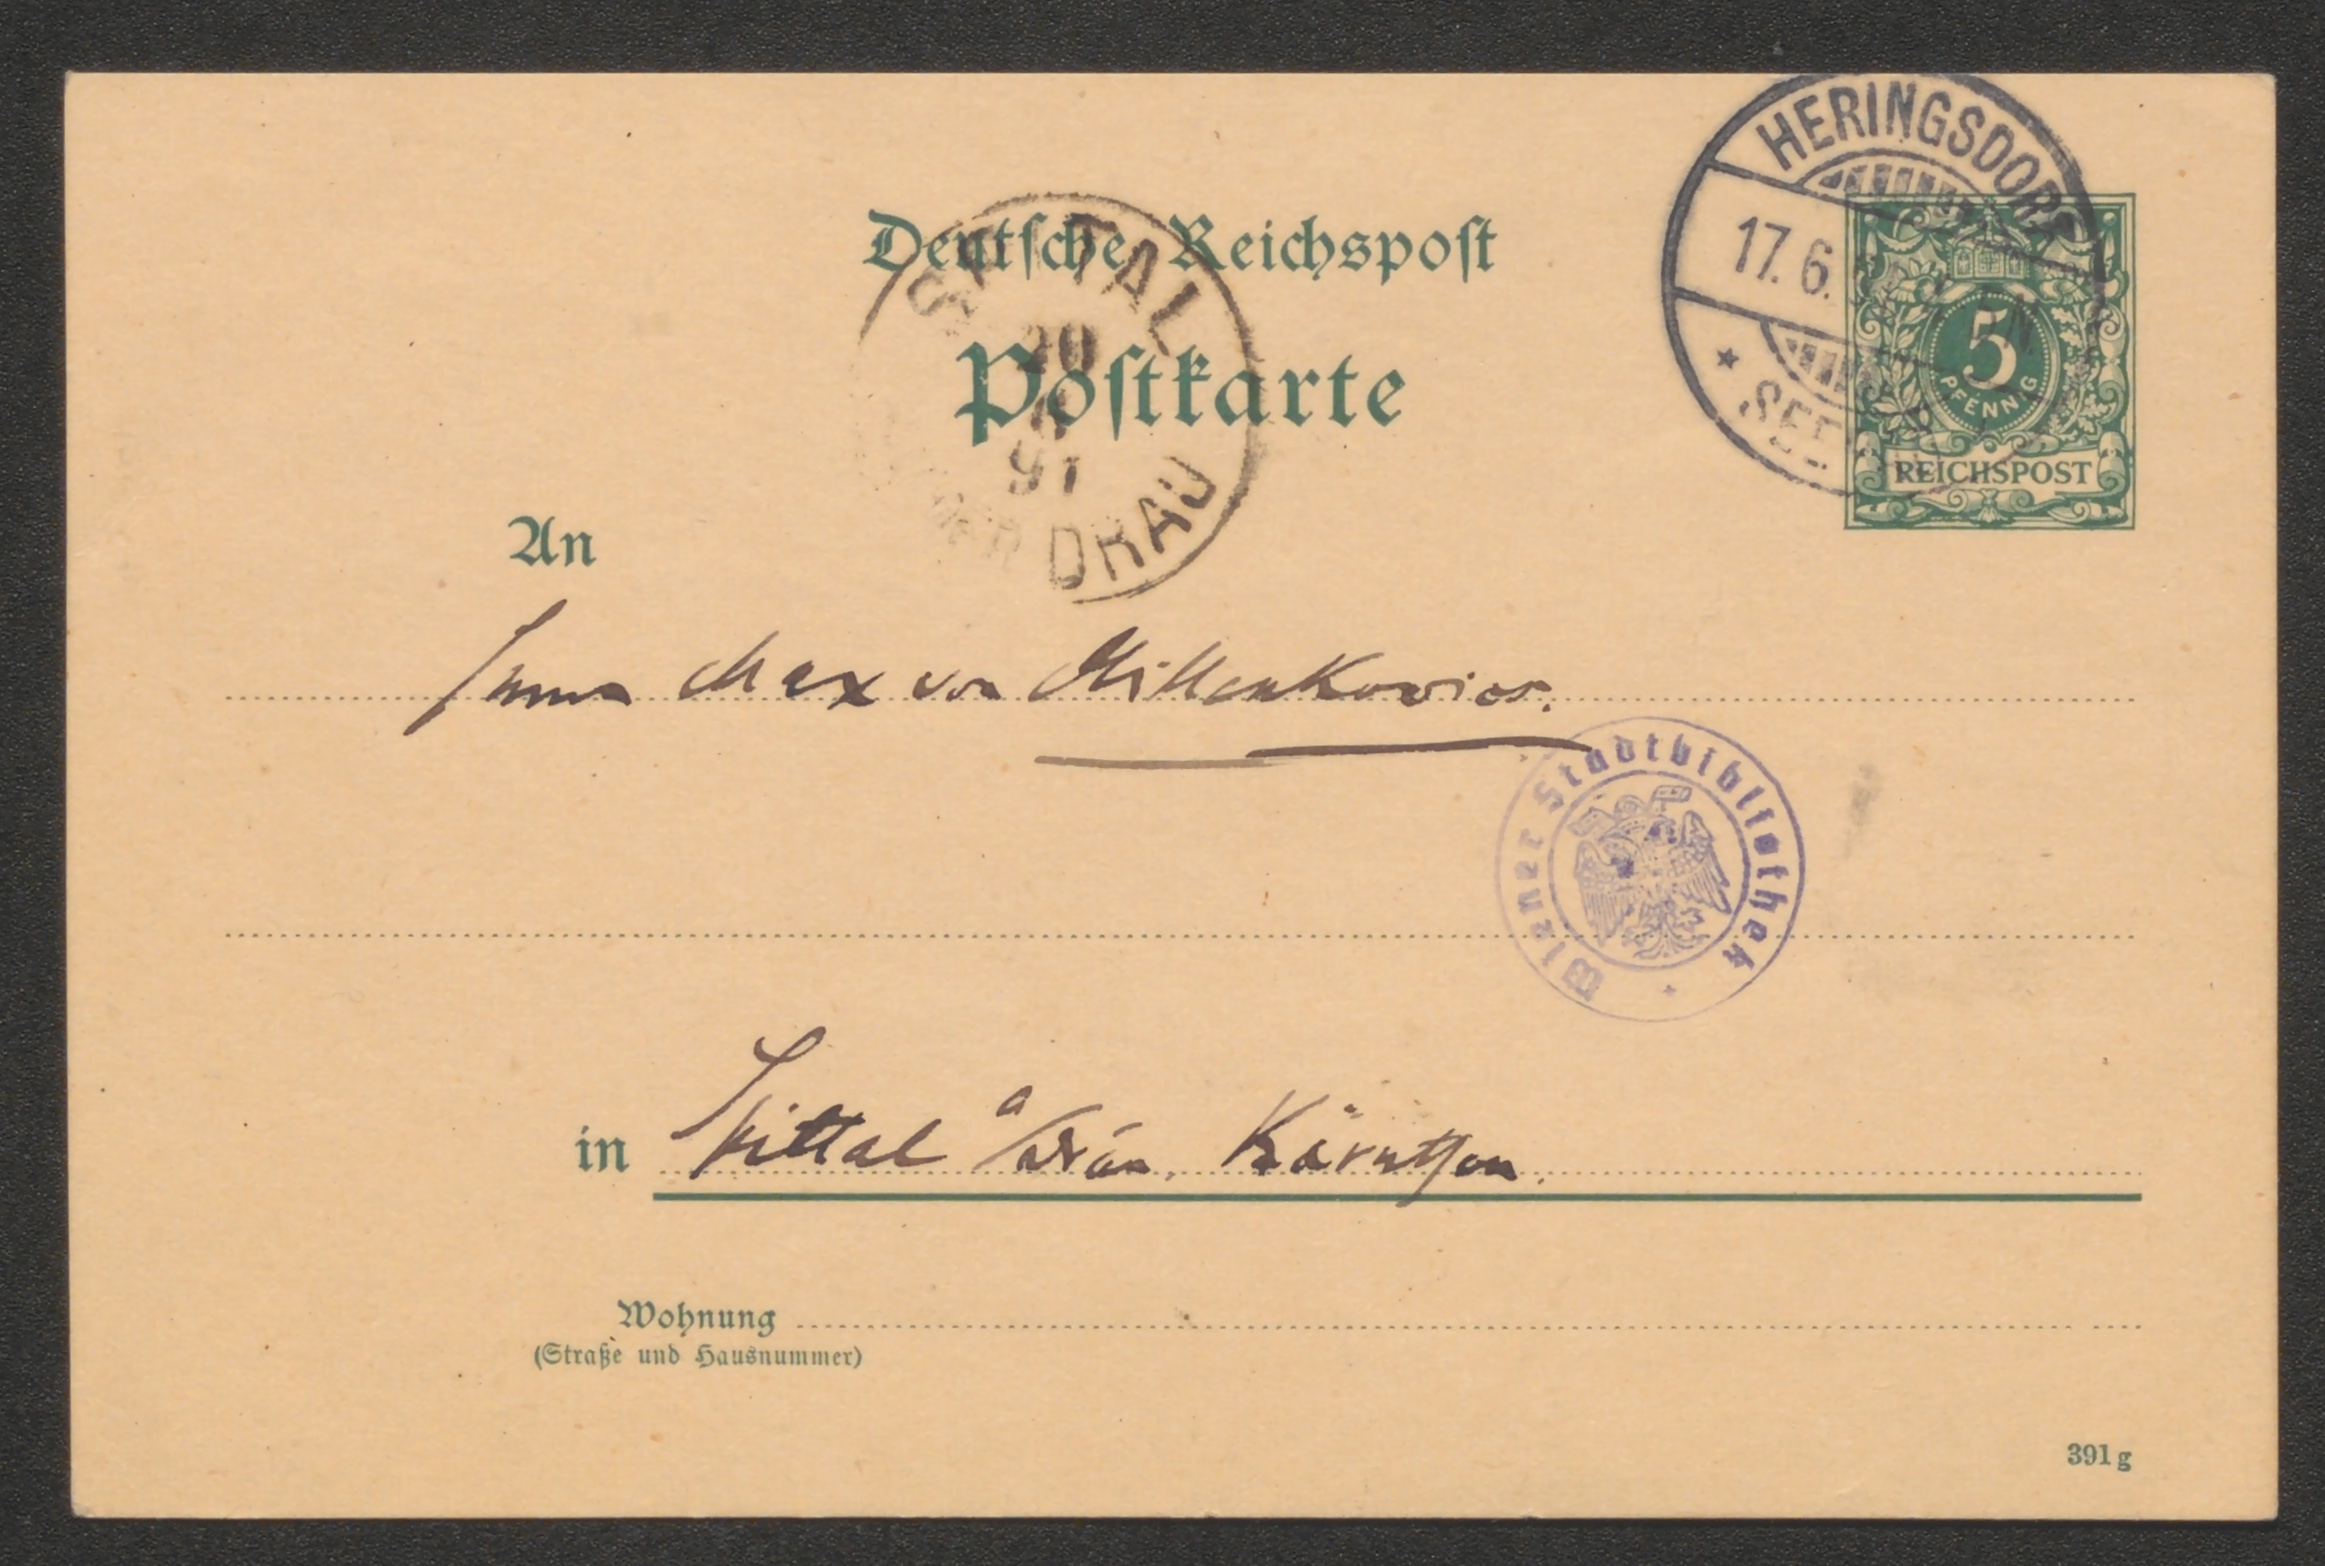 Deutsche Reichspost
Postkarte
HERINGSDORF
17.6.
SEE
5
PFENNIG
REICHSPOST
SPITTAL
20
6
91
AN DER DRAU
An
Herrn Max von Millenkovics.
Wiener Stadtbibliothek
in Spittal a/Drau. Kärnthen.
Wohnung
(Straße und Hausnummer)
391 g